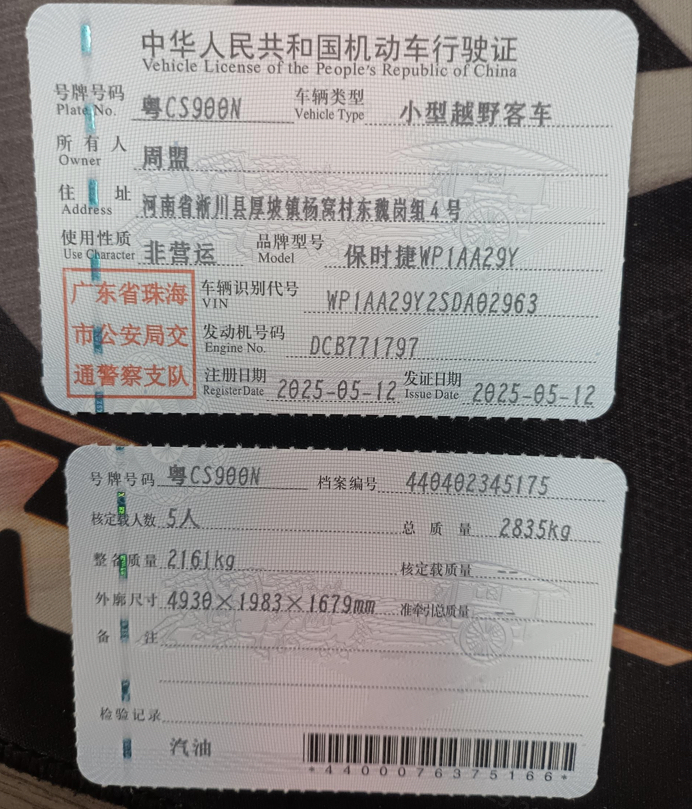 中华人民共和国机动车行驶证
Vehicle License of the People's Republic of China
号牌号码 Plate No. 粤CS900N 车辆类型 Vehicle Type 小型越野客车
所有人 Owner 周盟
住址 Address 河南省淅川县厚坡镇杨窝村东魏岗组4号
使用性质 Use Character 非营运 品牌型号 Model 保时捷WP1AA29Y
广东省珠海
市公安局交
通警察支队
车辆识别代号 VIN WP1AA29Y2SDA02963
发动机号码 Engine No. DCB771797
注册日期 Register Date 2025-05-12 发证日期 Issue Date 2025-05-12
号牌号码 粤CS900N 档案编号 440402345175
核定载人数 5人 总质量 2835kg
整备质量 2161kg 核定载质量 --
外廓尺寸 4930×1983×1679mm 准牵引总质量 --
备注
检验记录
汽油
*4400076375166*